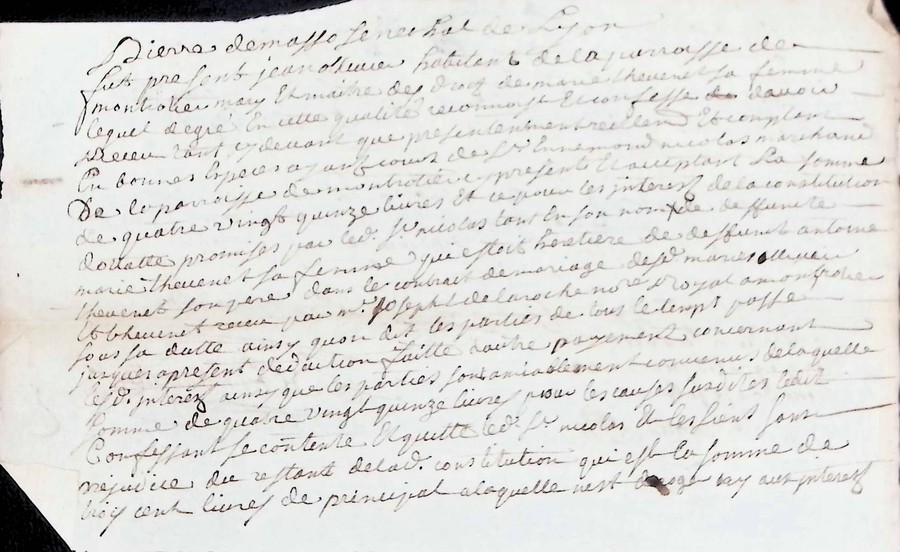 Pierre demasso senechal de Lyon
fut present jean ollivier habitant de la parroisse de
montrotier mary Et maitre des droits de marie thevenet sa femme
lequel de gré En cette qualité reconnoist Et confesse davoir
Receu tant cy devant que presentement reellem Et comptant
En bonnes Especes ayant cours de Sr. Ennemond nicolas marchand
De la parroisse de montrotier present Et acceptant La somme
de quatre vingt quinze livres Et ce pour les jnterets de la constitution
dotatte promises par led. Sr. nicolas tant En son nom que de deffuncte
marie thevenet sa femme qui estoit heretiere de deffunt antoine
thevenet son pere dans le contrait de mariage desd. maries ollivier
Et thevenet receu par Mr. joseph delaroche nore. royal a montrotier
sous sa datte ainsy quon dit les parties de tous le temps passe
jusques a present deduction faitte dautre payement concernant
lesd. jnterets ainsy que les parties sont amiablement convenus de laquelle
somme de quatre vingt quinze livres pour les causes susdites ledit
Confessant se contente Et quitte led. Sr. nicolas Et les siens sans
prejudice du restant de lad. constitution qui est la somme de
trois cent livres de principal a laquelle nest deroge ny aux jnterets